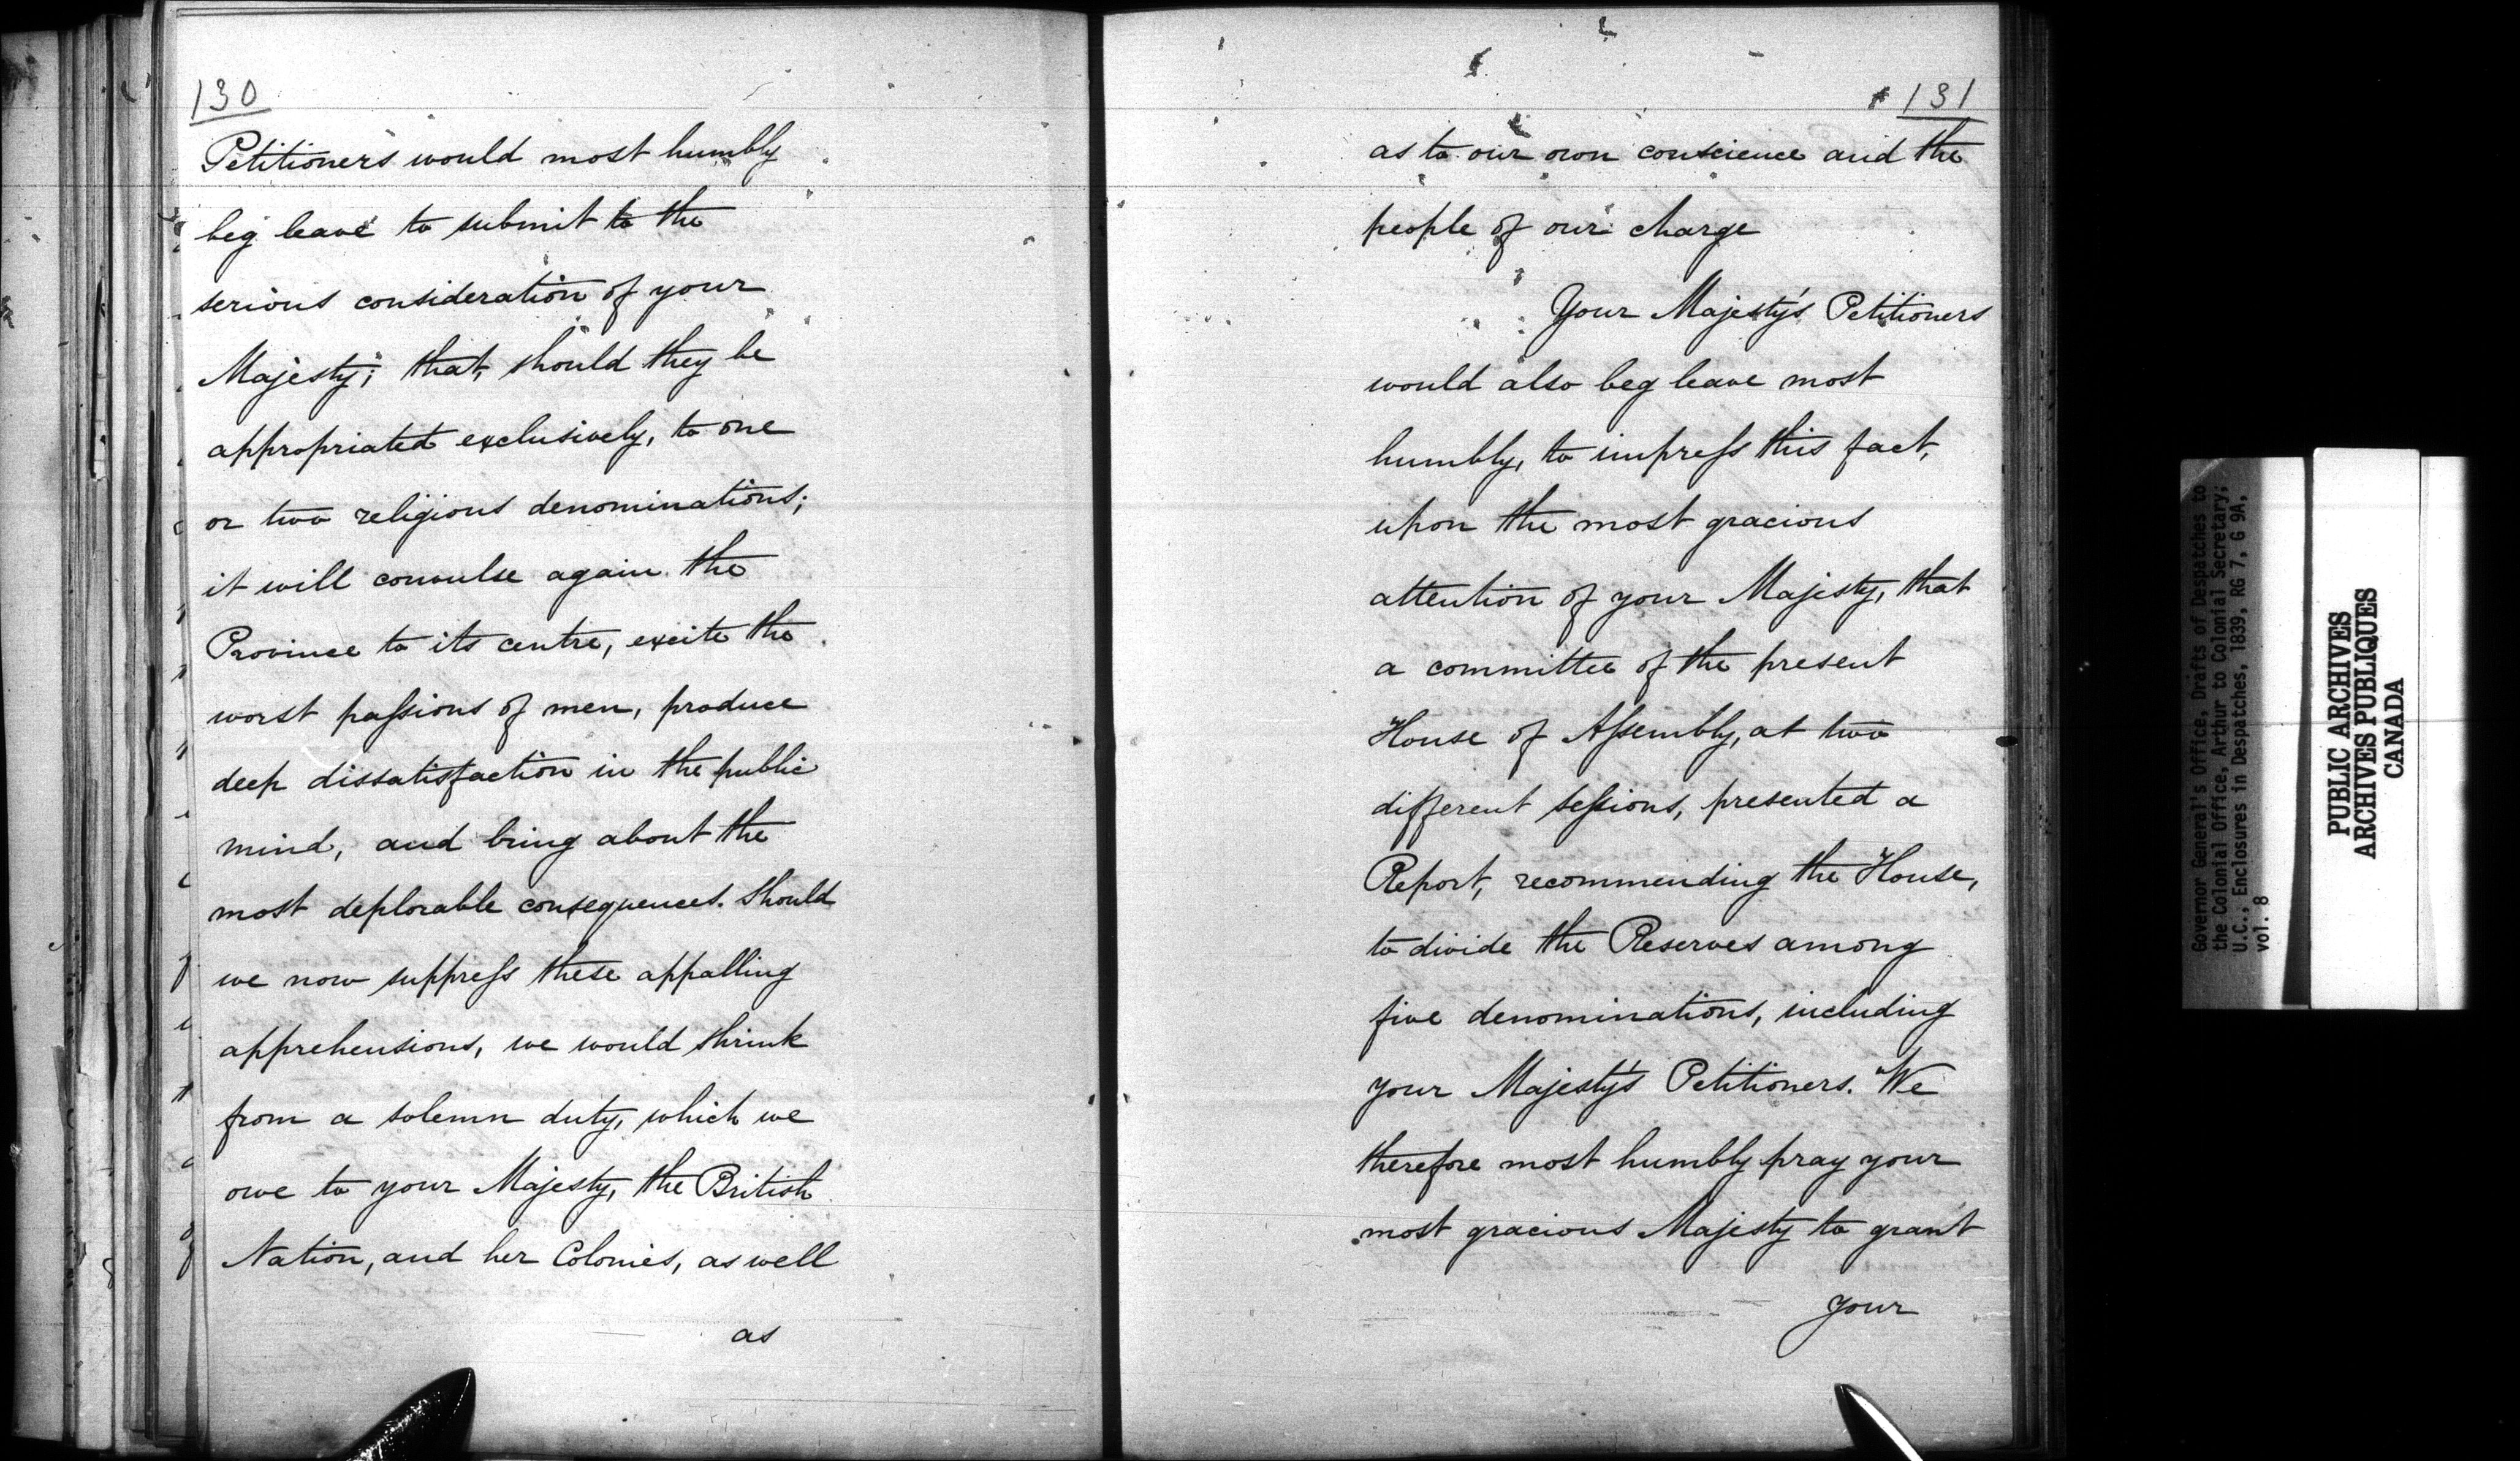 130
Petitioners would most humbly
beg leave to submit to the
serious consideration of your
Majesty; that, should they be
appropriated exclusively, to one
or two religious denominations;
it will convulse again the
Province to its centre, excite the
worst passions of men, produce
deep dissatisfaction in the public
mind, and bring about the
most deplorable consequences. Should
we now suppress these appalling
apprehensions, we would shrink
from a solemn duty, which we
owe to your Majesty, the British
Nation, and her Colonies, as well
as
131
as to our own conscience and the
people of our charge
Your Majesty's Petitioners
would also beg leave most
humbly, to impress this fact,
upon the most gracious
attention of your Majesty, that
a committee of the present
House of Assembly, at two
different sessions, presented a
Report, recommending the House,
to divide the Reserves among
five denominations, including
your Majesty's Petitioners. We
therefore most humbly pray your
most gracious Majesty to grant
your
Governor General's Office, Drafts of Despatches to
the Colonial Office, Arthur to Colonial Secretary,
U.C., Enclosures in Despatches, 1839, RG 7, G 9A,
vol. 8
PUBLIC ARCHIVES
ARCHIVES PUBLIQUES
CANADA